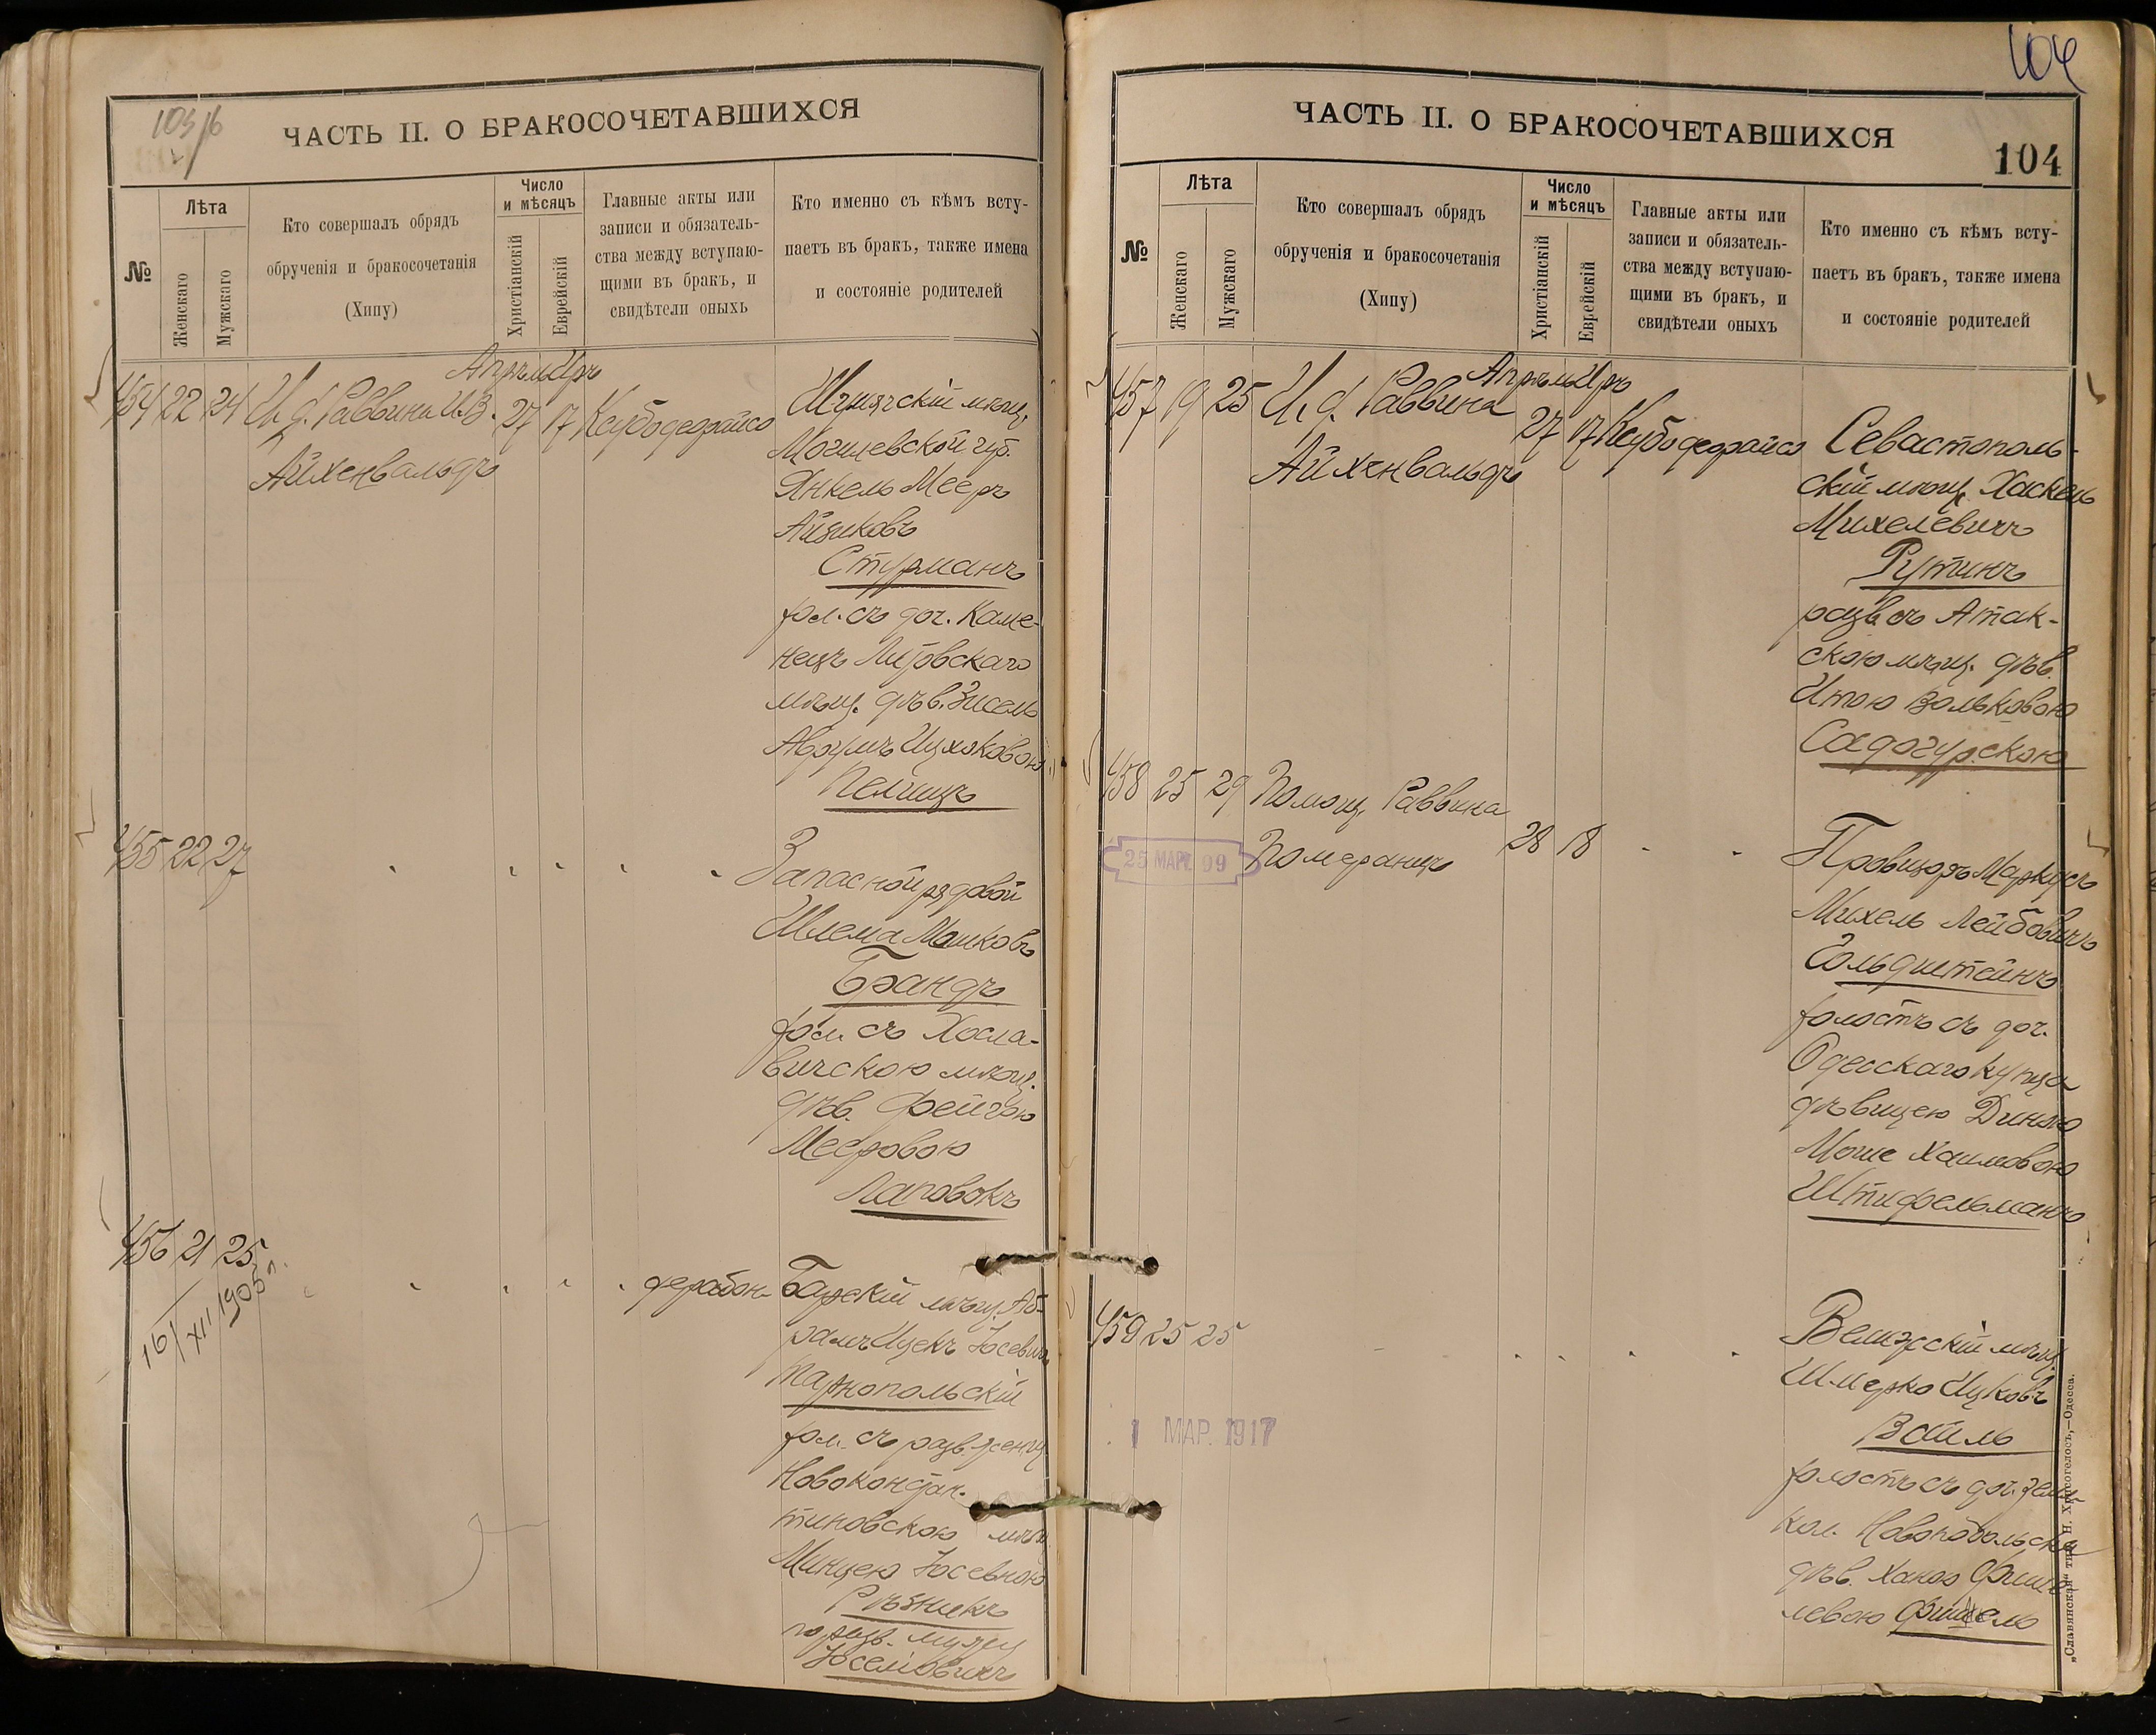 ЧАСТЬ II. О БРАКОСОЧЕТАВШИХСЯ
№
Лѣта
Женскаго
Мужскаго
Кто совершалъ обрядъ
обрученія и бракосочетанія
(Хипу)
Число
и мѣсяцъ
Христіанскій
Еврейскій
Главные акты или
записи и обязатель-
ства между вступаю-
щими въ бракъ, и
свидѣтели оныхъ
Кто именно съ кѣмъ всту-
паетъ въ бракъ, также имена
и состояніе родителей
Апрѣль Иръ
454 22 24 И. д. Раввина И.В. 27 17 Ксубо дерайсо
Айхенвальдъ
мѣщ.
Могилевской губ.
Янкель Мееръ
Айзиковъ
Стурманъ
хол. съ доч. Каме-
нецъ Литовскаго
мѣщ. дѣв. Зисель
Аврумъ Ицховою
Пелчицъ
455 22 27
Запасной рядовой
Шлема Мошковъ
Брандъ
хол. съ Хосла-
вичскою мѣщ.
дѣв. Фейгою
Мееровою
Лаповокъ
456 21 25
16/XII 1905 г.
дерабон-
Барскій мѣщ. Аб-
рамъ Ицекъ Іосевичъ
Тарнопольскій
хол. съ разв. женщ.
Новоконстан-
тиновскою мѣщ.
Минцею Іосевною
Рѣзникъ
по разв. мужу
Іоселіовичъ
ЧАСТЬ II. О БРАКОСОЧЕТАВШИХСЯ
104
104
№
Лѣта
Женскаго
Мужскаго
Кто совершалъ обрядъ
обрученія и бракосочетанія
(Хипу)
Число
и мѣсяцъ
Христіанскій
Еврейскій
Главные акты или
записи и обязатель-
ства между вступаю-
щими въ бракъ, и
свидѣтели оныхъ
Кто именно съ кѣмъ всту-
паетъ въ бракъ, также имена
и состояніе родителей
Апрѣль Иръ
457 19 25 И. д. Раввина 27 17 Ксубо дерайсо
Айхенвальдъ
Севастополь-
скій мѣщ. Хаскель
Михелевичъ
Рутинъ
разв. съ Атак-
скою мѣщ. дѣв.
Итою Вольковою
Садогурскою
458 25 29 Помощ. Раввина
Померанцъ 28 18
25 МАР. 99
Провизоръ Маркусъ
Михель Лейбовичъ
Гольдштейнъ
холостъ съ доч.
Одесскаго купца
дѣвицею Диною
Моше Хаимовою
Штифельманъ
459 25 25
1 МАР. 1917
Велижскій мѣщ.
Шмерко Ицковъ
Вейль
холостъ съ доч. земл.
кол. Новоповольска
дѣв. Ханою Фише-
левою Фишель
„Славянская“ тип. Н. Хрисогелосъ,—Одесса.